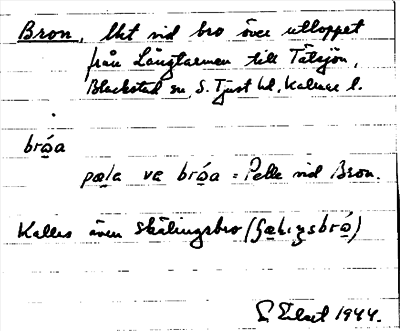 Bron, lht vid bro över utloppet
från Långtarmen till Tätsjön,
Blackstad sn, S. Tjust hd, Kalmar l.
brǿa
pæla va brǿa = Pelle vid Bron.
Kalles även Skälingsbro
1944.